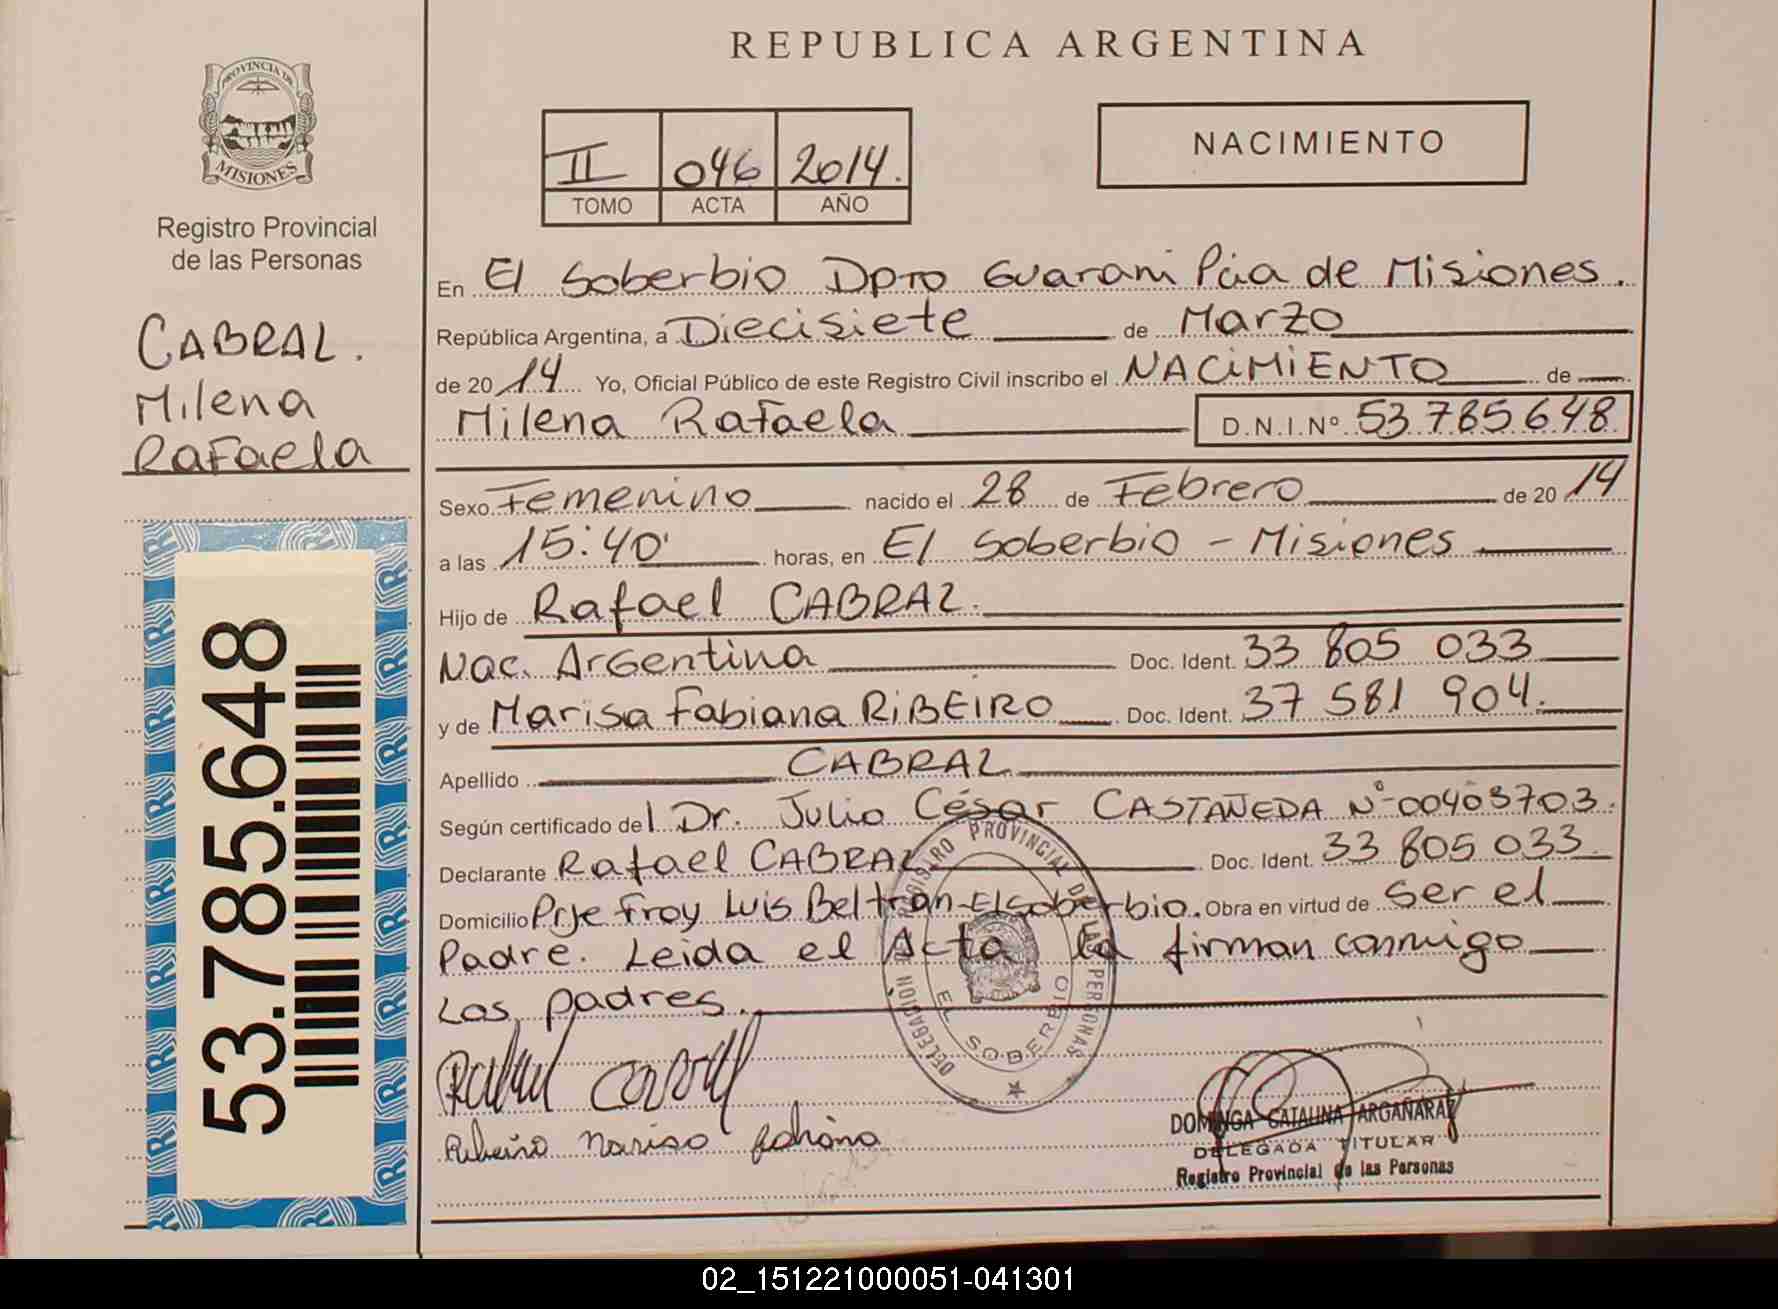 REPUBLICA ARGENTINA
PROVINCIA DE
MISIONES
Registro Provincial
de las Personas
II 046 2014.
TOMO ACTA AÑO
NACIMIENTO
CABRAL.
Milena
Rafaela
53.785.648
En El Soberbio Dpto Guarani Pcia de Misiones.
República Argentina, a Diecisiete de Marzo
de 2014 Yo, Oficial Público de este Registro Civil inscribo el NACIMIENTO de
Milena Rafaela D.N.I.Nº 53 785 648
Sexo Femenino nacido el 28 de Febrero de 2014
a las 15:40' horas, en El Soberbio - Misiones
Hijo de Rafael CABRAL.
Nac. Argentina Doc. Ident. 33 805 033
y de Marisa Fabiana RIBEIRO Doc. Ident. 37 581 904.
Apellido CABRAL
Según certificado del Dr. Julio César CASTAÑEDA Nº 00403703.
Declarante Rafael CABRAL Doc. Ident. 33 805 033
Domicilio Pje Fray Luis Beltrán-El Soberbio. Obra en virtud de ser el
Padre. Leida el Acta la firman conmigo
Los padres.
DELEGACION REGISTRO PROVINCIAL DE LAS PERSONAS
EL SOBERBIO
Rafael Cabral
Ribeiro Marisa Fabiana
DOMINGA CATALINA ARGAÑARAZ
DELEGADA TITULAR
Registro Provincial de las Personas
02_151221000051-041301